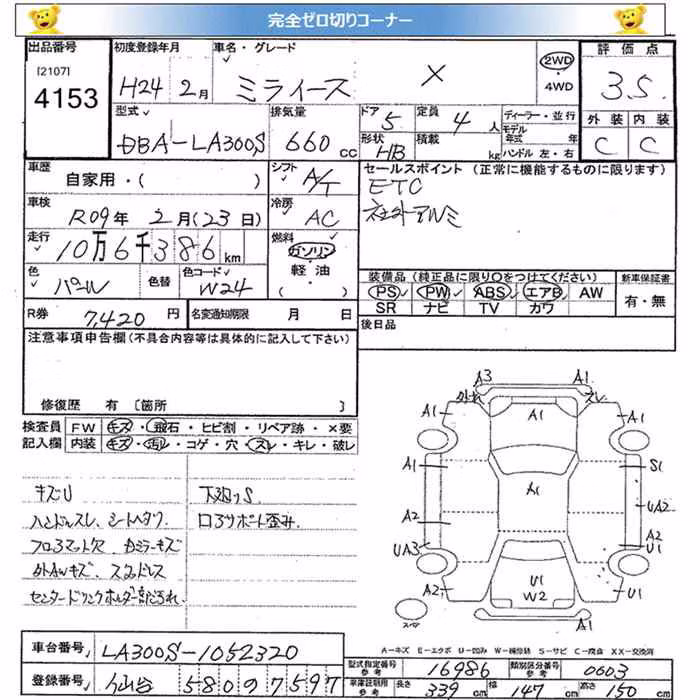 完全ゼロ切りコーナー
出品番号 初度登録年月 車名・グレード 評価点
[2107] 4153 H24 2月 ミライース X 2WD・4WD 3.5
型式 排気量 ドア 定員 ディーラー・並行 外装 内装
DBA-LA300S 660cc 5 4人 モデル年式 年 C C
形状 HB 積載 kg ハンドル 左・右
車歴 自家用・( ) シフト A/T セールスポイント(正常に機能するものに限ります)
車検 R09年 2月(23日) 冷房 AC ETC
社外アルミ
走行 10万6千386km 燃料 ガソリン・軽油・( )
色 パール 色替 色コード W24 装備品(純正品に限り○をつけてください) 新車保証書
PS・PW・ABS・エアB・AW 有・無
SR ナビ TV カワ
R券 7,420円 名変通知期限 月 日 後日品
注意事項申告欄(不具合内容等は具体的に記入して下さい)
修復歴 有 [箇所 ]
検査員 FW キズ・飛石・ヒビ割・リペア跡・×要
記入欄 内装 キズ・汚レ・コゲ・穴・スレ・キレ・破レ
キズU 下廻りS
ハンドルスレ、シートヘタリ ロアサポート歪み
フロアマット欠 Dミラーキズ
外AWキズ、スペアレス
センタードリンクホルダー部だれ
A3 A1
外れ スレ
A1 A1 A1
A1 A1 S1
UA2
A2 A2
UA3 U1
A2 U1 U1
W2
スペア
A-キズ E-エクボ U-凹み W-補修跡 S-サビ C-腐食 XX-交換済
車台番号 LA300S-1052320 型式指定番号 参考 16986 類別区分番号 参考 0603
登録番号 仙台 580 わ 7597 車庫証明用 参考 長さ 339cm 幅 147cm 高さ 150cm